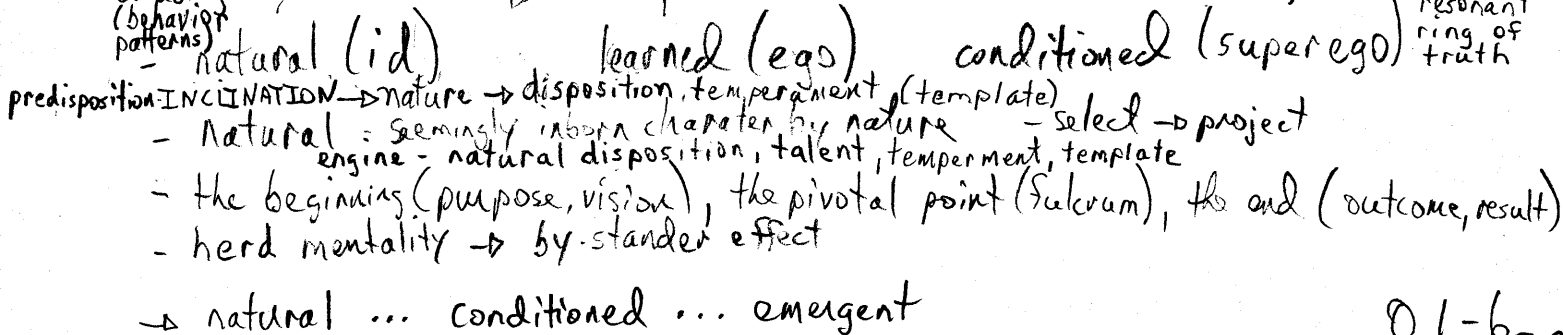 (behavior
patterns)
resonant
ring of
truth
- natural (id) learned (ego) conditioned (superego)
predisposition-INCLINATION → nature → disposition, temperament, (template)
- natural = seemingly inborn charater by nature - select → project
engine - natural disposition, talent, temperment, template
- the beginning (purpose, vision), the pivotal point (fulcrum), the end (outcome, result)
- herd mentality → by-stander effect
→ natural ... conditioned ... emergent